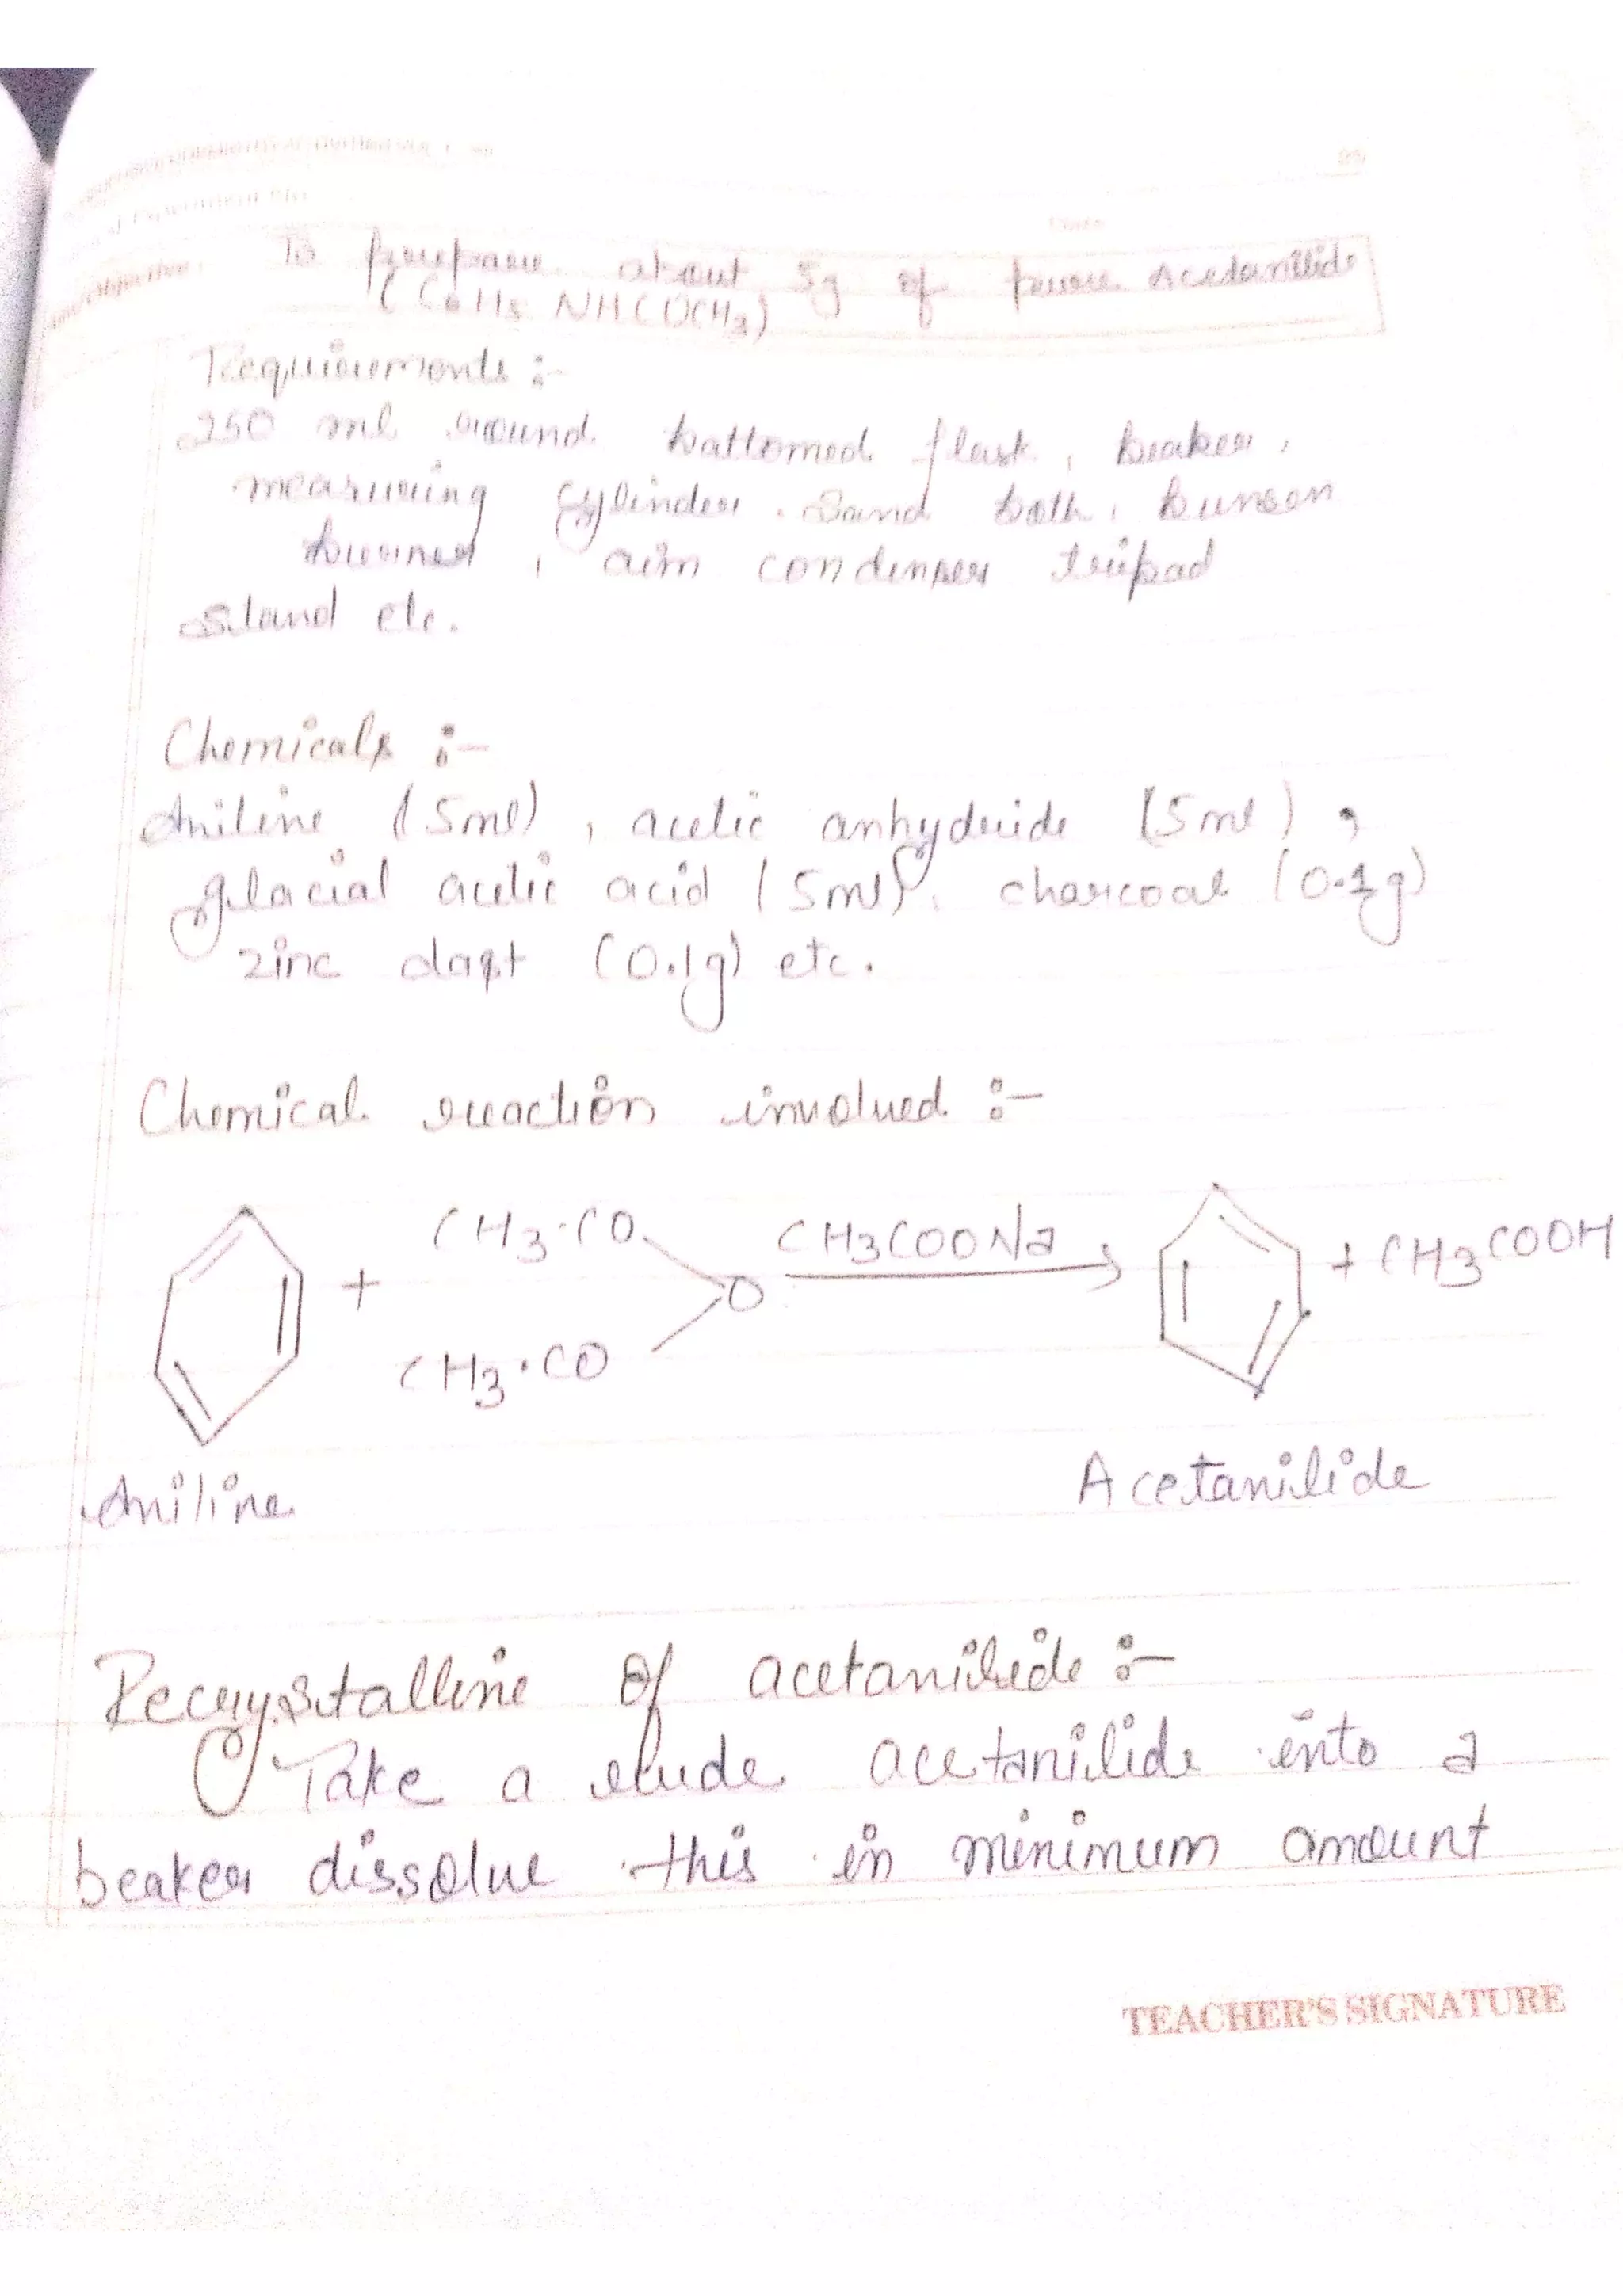 Objective :
To prepare about 5g of pure Acetanilide
(C6H5 NHCOCH3)
Requirements :-
250 ml round bottomed flask, beaker,
measuring cylinder, Sand bath, bunsen
burner, aim condenser tripad
stand etc.
Chemicals :-
Aniline (5ml), acetic anhydride (5ml),
glacial acetic acid (5ml), charcoal (0.1g)
zinc dast (0.1g) etc.
Chemical reaction involved :-
CH3.CO CH3COONa
+ O + CH3COOH
CH3.CO
Aniline Acetanilide
Recrystalline of acetanilide :-
Take a crude acetanilide into a
beaker dissolve this in minimum amount
TEACHER'S SIGNATURE